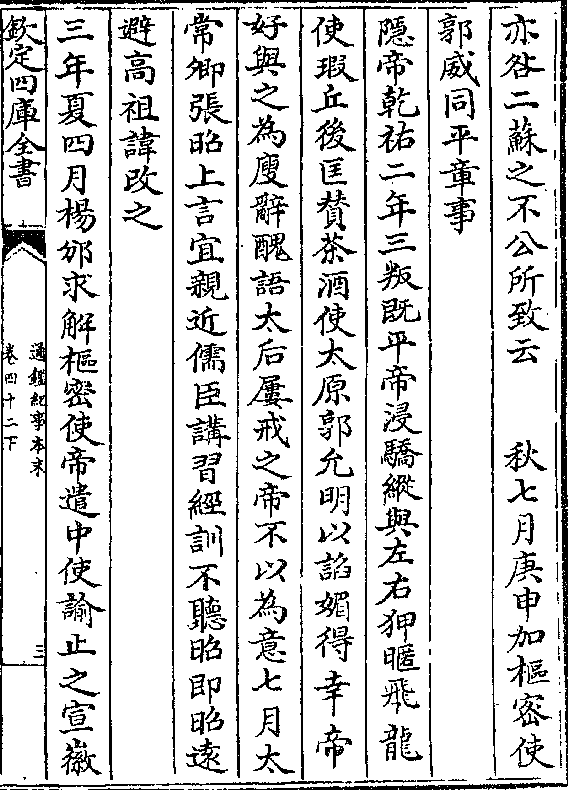 亦咎二蘇之不公所致云　　秋七月庚申加樞密使
郭威同平章事
隱帝乾祐二年三叛既平帝浸驕縱與左右狎暱飛龍
使瑕丘後匡贊茶酒使太原郭允明以諂媚得幸帝
好與之為廋辭醜語太后屢戒之帝不以為意七月太
常卿張昭上言宜親近儒臣講習經訓不聽昭即昭遠
避高祖諱改之
三年夏四月楊邠求解樞密使帝遣中使諭止之宣徽
欽定四庫全書
通鑑紀事本末
卷四十二下
三